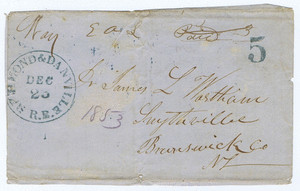 Way
Paid 3
5
RICHMOND & DANVILLE
DEC
23
R.R.
Dr James L Wortham
1853
Smythville
Brunswick Co